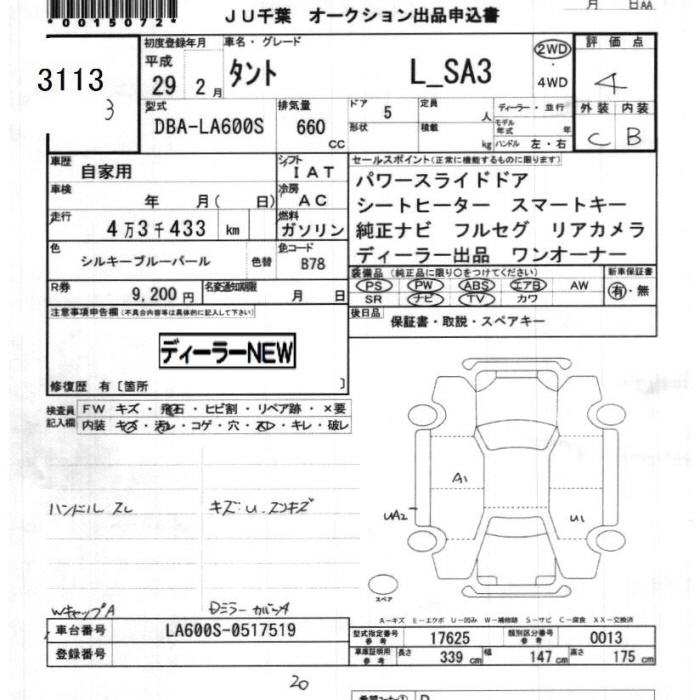 月 日AA
*0015072*
JU千葉 オークション出品申込書
3113
3
初度登録年月
平成
29 2月
車名・グレード
タント L_SA3
2WD
4WD
評価点
4
外装 内装
C B
型式
DBA-LA600S
排気量
660 cc
ドア 5
形状
定員 人
積載 kg
ディーラー・並行
モデル年式 年
ハンドル 左・右
車歴 自家用
シフト IAT
車検 年 月( 日)
冷房 AC
走行 4万3千433 km
燃料 ガソリン
色 シルキーブルーパール 色替
色コード B78
R券 9,200円
名変通知期限 月 日
セールスポイント(正常に機能するものに限ります)
パワースライドドア
シートヒーター スマートキー
純正ナビ フルセグ リアカメラ
ディーラー出品 ワンオーナー
装備品(純正品に限り○をつけてください)
PS PW ABS エアB AW
SR ナビ TV カワ
新車保証書
有・無
後日品
保証書・取説・スペアキー
注意事項申告欄(不具合内容等は具体的に記入して下さい)
ディーラーNEW
修復歴 有〔箇所 〕
検査員記入欄
FW キズ・飛石・ヒビ割・リペア跡・×要
内装 キズ・汚レ・コゲ・穴・スレ・キレ・破レ
ハンドル スレ
キズ・U.スリキズ
WキャップA
DミラーカバーA
A1
UA2
U1
スペア
A-キズ E-エクボ U-凹み W-補修跡 S-サビ C-腐食 XX-交換済
車台番号 LA600S-0517519
登録番号
型式指定番号 参考 17625
類別区分番号 参考 0013
車庫証明用 参考 長さ 339cm 幅 147cm 高さ 175cm
20